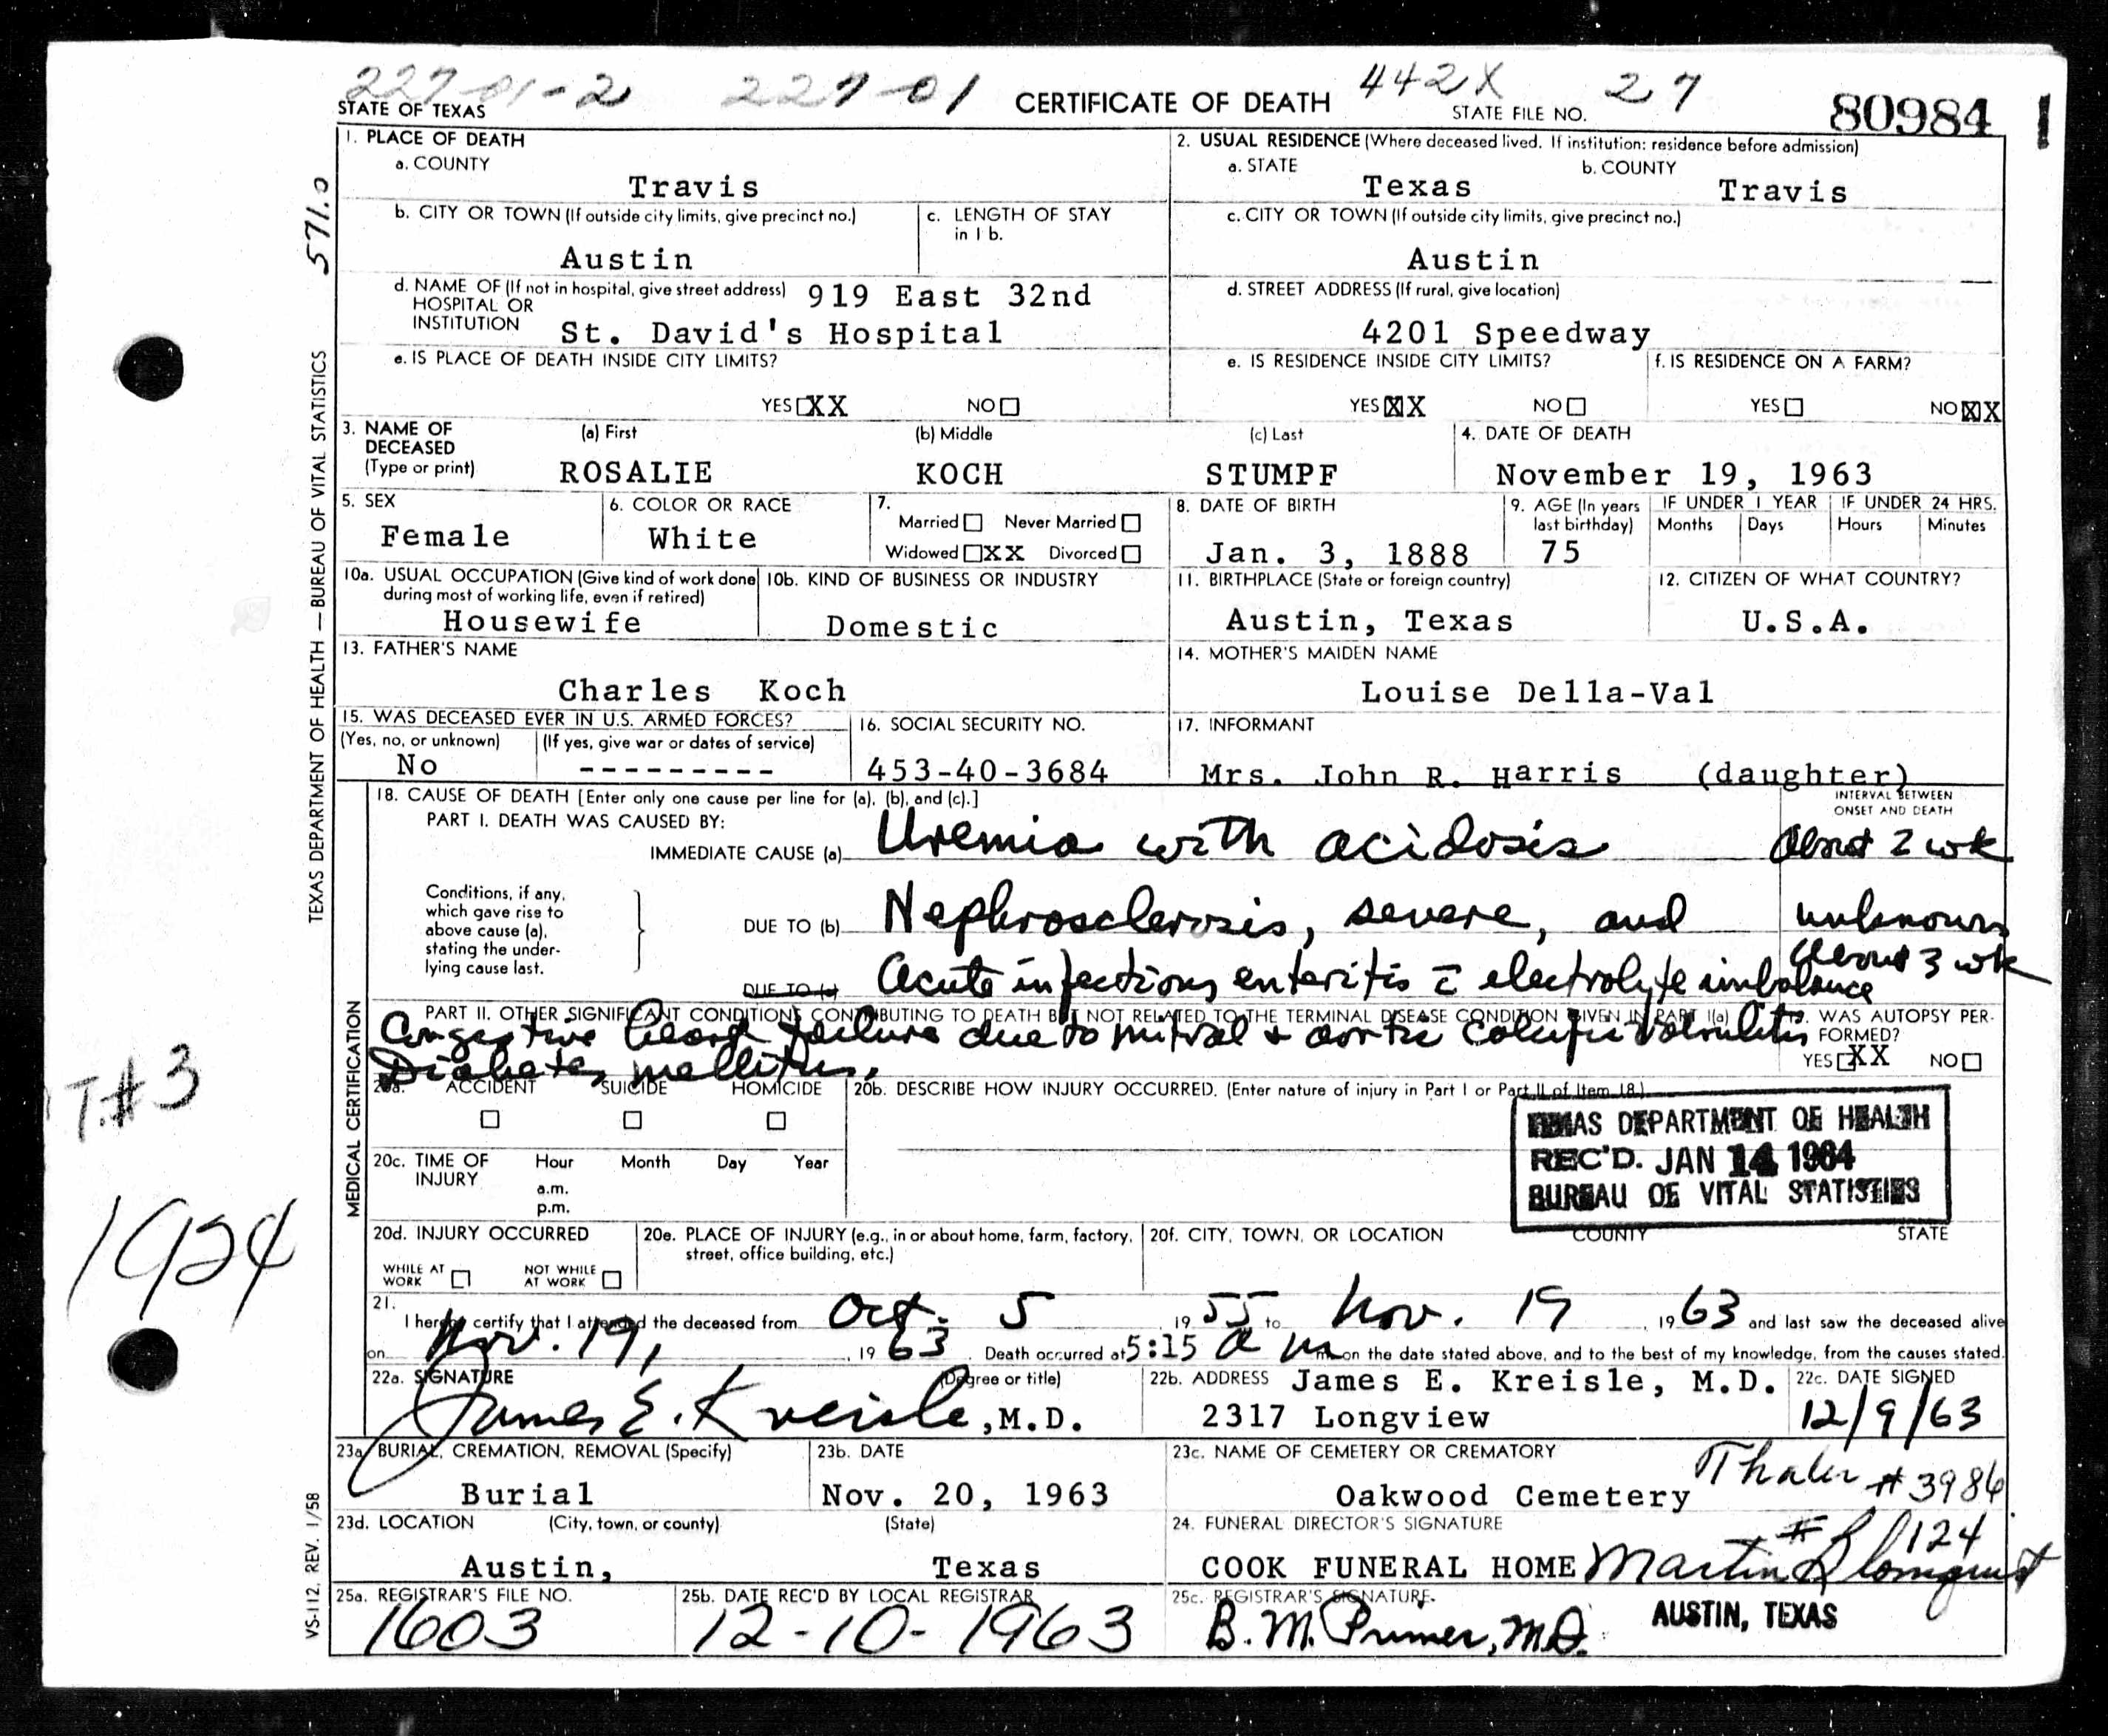 227-01-2 227-01 CERTIFICATE OF DEATH 442X 27
STATE OF TEXAS STATE FILE NO. 80984 1
1. PLACE OF DEATH
a. COUNTY
Travis
2. USUAL RESIDENCE (Where deceased lived. If institution: residence before admission)
a. STATE b. COUNTY
Texas Travis
b. CITY OR TOWN (If outside city limits, give precinct no.)
Austin
c. LENGTH OF STAY
in 1 b.
c. CITY OR TOWN (If outside city limits, give precinct no.)
Austin
d. NAME OF (If not in hospital, give street address) 919 East 32nd
HOSPITAL OR
INSTITUTION St. David's Hospital
d. STREET ADDRESS (If rural, give location)
4201 Speedway
e. IS PLACE OF DEATH INSIDE CITY LIMITS?
YES XX NO
e. IS RESIDENCE INSIDE CITY LIMITS?
YES XX NO
f. IS RESIDENCE ON A FARM?
YES NO XX
3. NAME OF
DECEASED
(Type or print)
(a) First (b) Middle (c) Last
ROSALIE KOCH STUMPF
4. DATE OF DEATH
November 19, 1963
5. SEX
Female
6. COLOR OR RACE
White
7.
Married Never Married
Widowed XX Divorced
8. DATE OF BIRTH
Jan. 3, 1888
9. AGE (In years
last birthday)
75
IF UNDER 1 YEAR
Months Days
IF UNDER 24 HRS.
Hours Minutes
10a. USUAL OCCUPATION (Give kind of work done
during most of working life, even if retired)
Housewife
10b. KIND OF BUSINESS OR INDUSTRY
Domestic
11. BIRTHPLACE (State or foreign country)
Austin, Texas
12. CITIZEN OF WHAT COUNTRY?
U.S.A.
13. FATHER'S NAME
Charles Koch
14. MOTHER'S MAIDEN NAME
Louise Della-Val
15. WAS DECEASED EVER IN U.S. ARMED FORCES?
(Yes, no, or unknown) (If yes, give war or dates of service)
No ---------
16. SOCIAL SECURITY NO.
453-40-3684
17. INFORMANT
Mrs. John R. Harris (daughter)
18. CAUSE OF DEATH [Enter only one cause per line for (a), (b), and (c).]
INTERVAL BETWEEN
ONSET AND DEATH
PART I. DEATH WAS CAUSED BY:
IMMEDIATE CAUSE (a) Uremia with acidosis About 2 wk
Conditions, if any,
which gave rise to
above cause (a),
stating the under-
lying cause last.
DUE TO (b) Nephrosclerosis, severe, and unknown
About 3 wk
DUE TO (c) Acute infectious enteritis c̄ electrolyte imbalance
PART II. OTHER SIGNIFICANT CONDITIONS CONTRIBUTING TO DEATH BUT NOT RELATED TO THE TERMINAL DISEASE CONDITION GIVEN IN PART I(a)
Congestive heart failure due to mitral & aortic calcific valvulitis
Diabetes mellitus.
WAS AUTOPSY PER-
FORMED?
YES XX NO
20a. ACCIDENT SUICIDE HOMICIDE
20b. DESCRIBE HOW INJURY OCCURRED. (Enter nature of injury in Part I or Part II of Item 18.)
TEXAS DEPARTMENT OF HEALTH
REC'D. JAN 14 1964
BUREAU OF VITAL STATISTICS
20c. TIME OF
INJURY
Hour Month Day Year
a.m.
p.m.
20d. INJURY OCCURRED
WHILE AT
WORK
NOT WHILE
AT WORK
20e. PLACE OF INJURY (e.g., in or about home, farm, factory,
street, office building, etc.)
20f. CITY, TOWN, OR LOCATION COUNTY STATE
21.
I hereby certify that I attended the deceased from Oct. 5 1955 to Nov. 19, 1963 and last saw the deceased alive
on Nov. 19, 1963. Death occurred at 5:15 a m on the date stated above, and to the best of my knowledge, from the causes stated.
22a. SIGNATURE (Degree or title)
James E. Kreisle, M.D.
22b. ADDRESS James E. Kreisle, M.D.
2317 Longview
22c. DATE SIGNED
12/9/63
23a. BURIAL, CREMATION, REMOVAL (Specify)
Burial
23b. DATE
Nov. 20, 1963
23c. NAME OF CEMETERY OR CREMATORY
Oakwood Cemetery Thaler #3986
23d. LOCATION (City, town, or county) (State)
Austin, Texas
24. FUNERAL DIRECTOR'S SIGNATURE #1124
COOK FUNERAL HOME Martin Blomquist
25a. REGISTRAR'S FILE NO.
1603
25b. DATE REC'D BY LOCAL REGISTRAR
12-10-1963
25c. REGISTRAR'S SIGNATURE
B. M. Primer, M.D. AUSTIN, TEXAS
571.0
TEXAS DEPARTMENT OF HEALTH — BUREAU OF VITAL STATISTICS
MEDICAL CERTIFICATION
VS-112 REV. 1/58
T.#3
1924